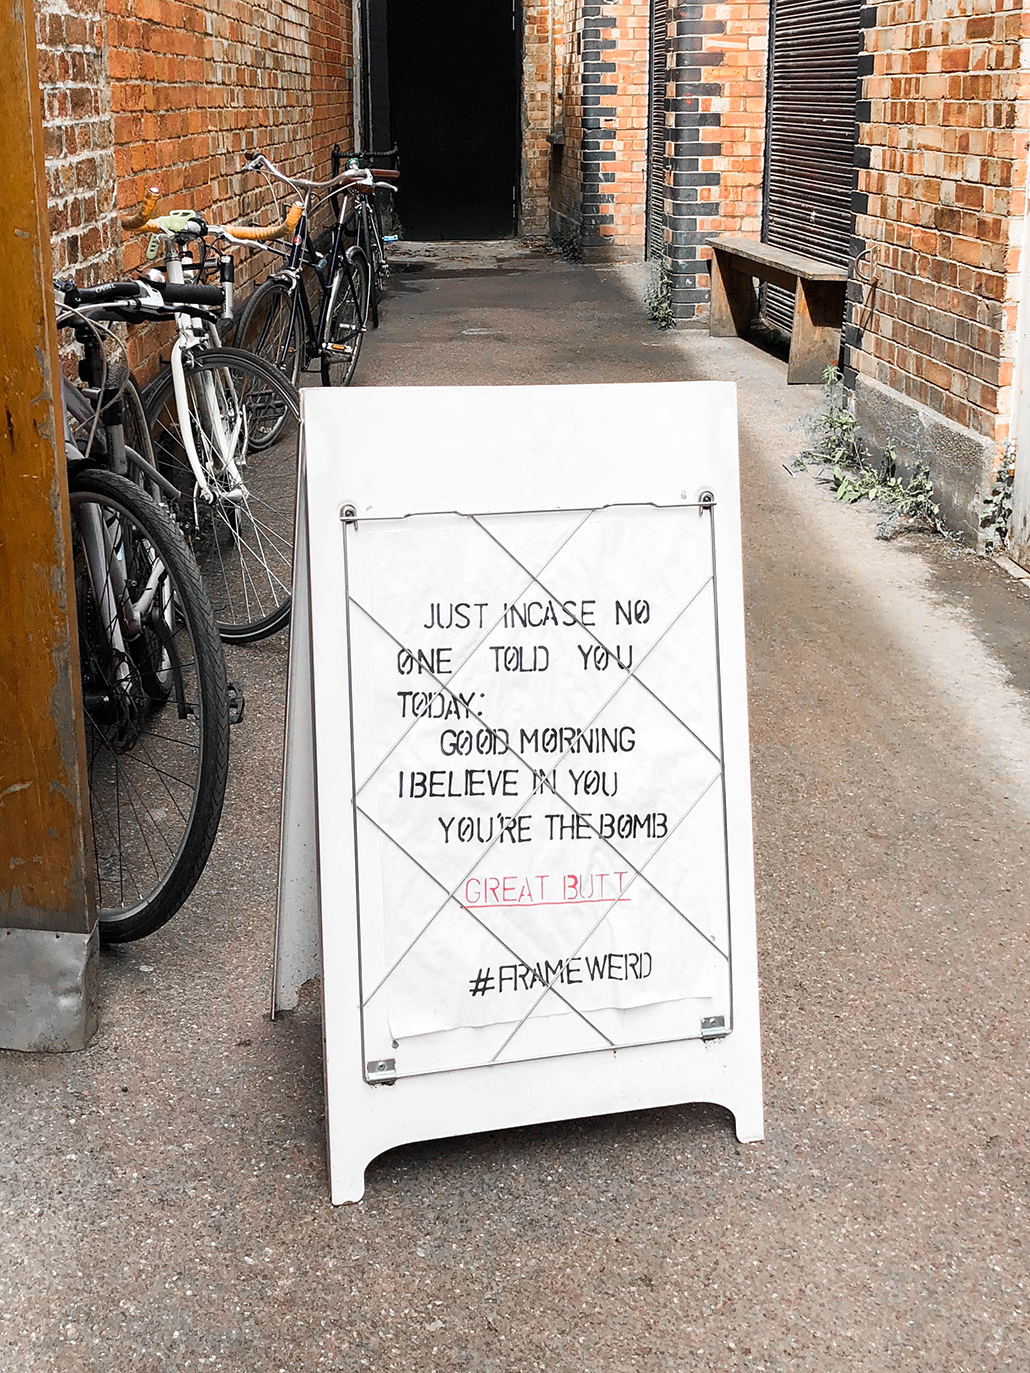 JUST INCASE NO
ONE TOLD YOU
TODAY:
GOOD MORNING
I BELIEVE IN YOU
YOU'RE THE BOMB
GREAT BUTT
#FRAMEWERD